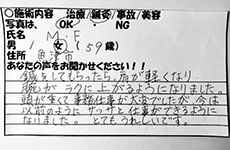 ○施術内容 治療/鍼灸/事故/美容
写真は、 OK ・ NG
氏名 M.F
男 / 女 (59歳)
住所 魚津市
あなたの声をお聞かせください!!
鍼をしてもらったら、肩が軽くなり
腕がラクに上がるようになりました。
頭が重くて事務仕事が大変でしたが 今は
以前のように ササッと仕事ができるように
なりました。とてもうれしいです。